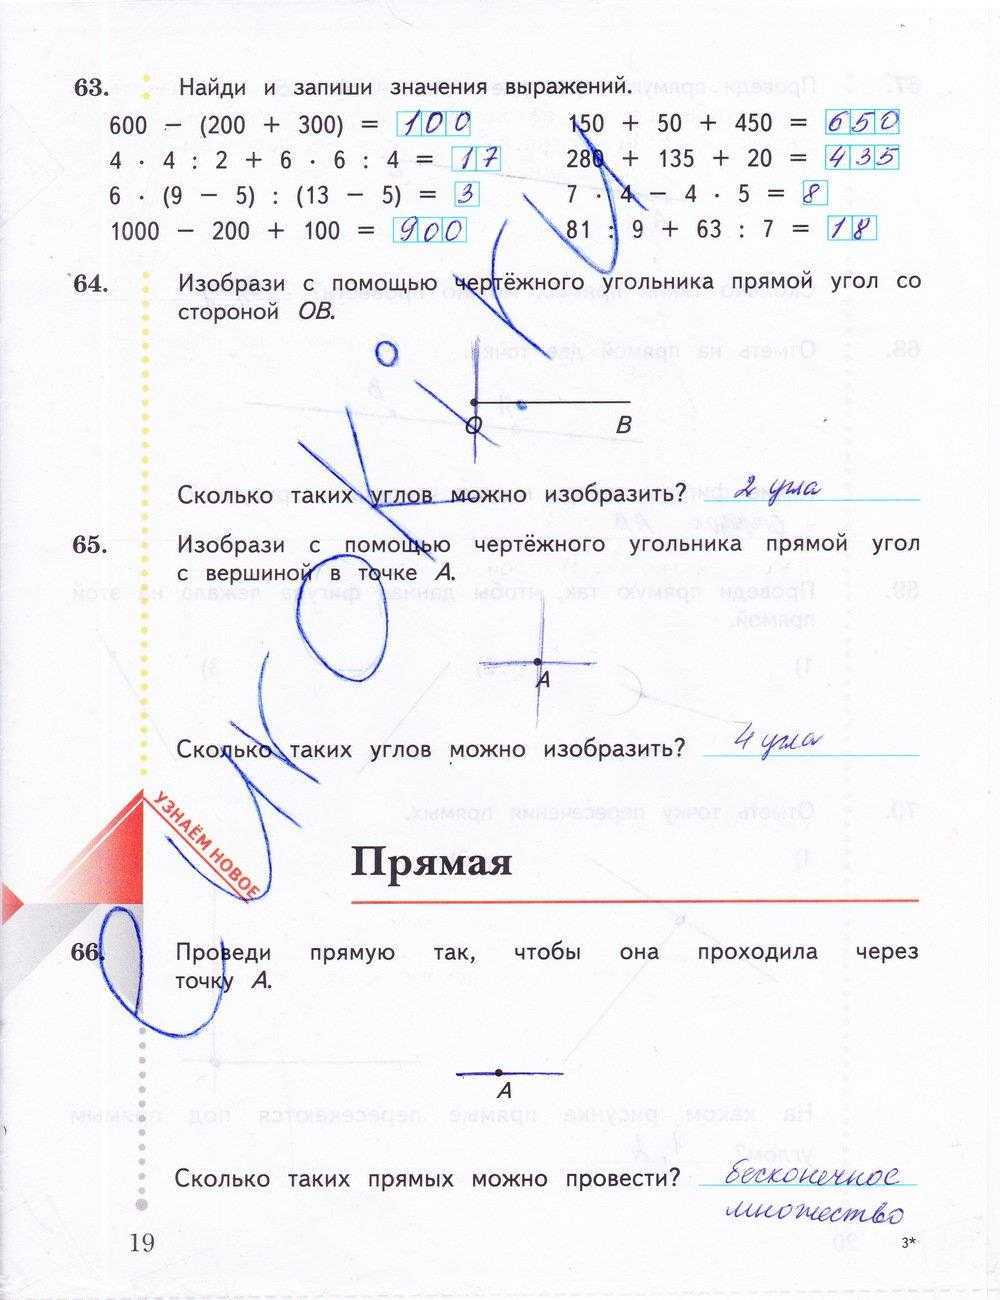 63. Найди и запиши значения выражений.
600 − (200 + 300) = 100
150 + 50 + 450 = 650
4 · 4 : 2 + 6 · 6 : 4 = 17
280 + 135 + 20 = 435
6 · (9 − 5) : (13 − 5) = 3
7 · 4 − 4 · 5 = 8
1000 − 200 + 100 = 900
81 : 9 + 63 : 7 = 18
64. Изобрази с помощью чертёжного угольника прямой угол со
стороной OB.
O B
Сколько таких углов можно изобразить? 2 угла
65. Изобрази с помощью чертёжного угольника прямой угол
с вершиной в точке A.
A
Сколько таких углов можно изобразить? 4 угла
УЗНАЁМ НОВОЕ
Прямая
66. Проведи прямую так, чтобы она проходила через
точку A.
A
Сколько таких прямых можно провести? бесконечное
множество
19
3*